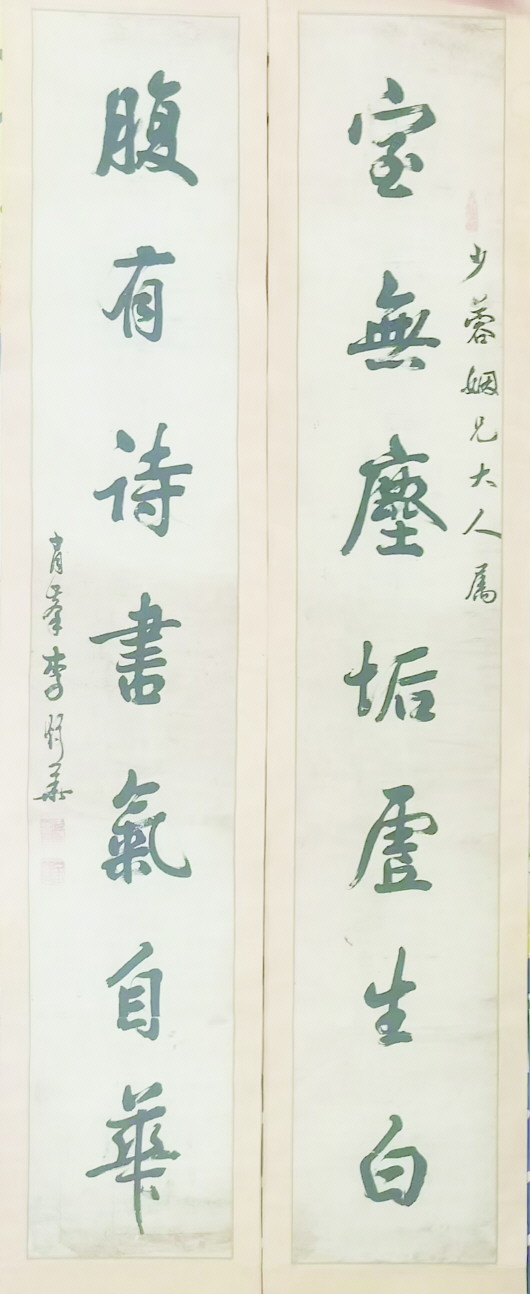 少蓉姻兄大人屬
室無塵垢虛生白
腹有詩書氣自華
肖峯李